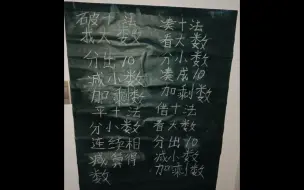 破十法
找大数
分出10
减小数
加剩数
平十法
分小数
连续相
减算得
数
凑十法
看大数
分小数
凑成10
加剩数
借十法
看大数
分出10
减小数
加剩数